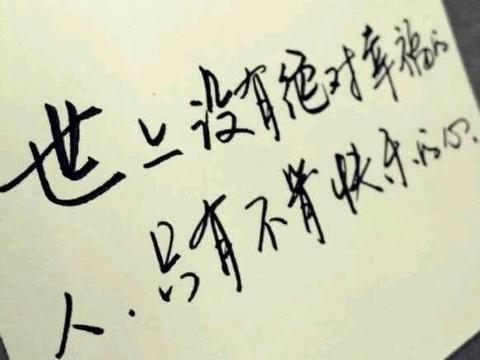 世上没有绝对幸福的
人.只有不肯快乐的心.